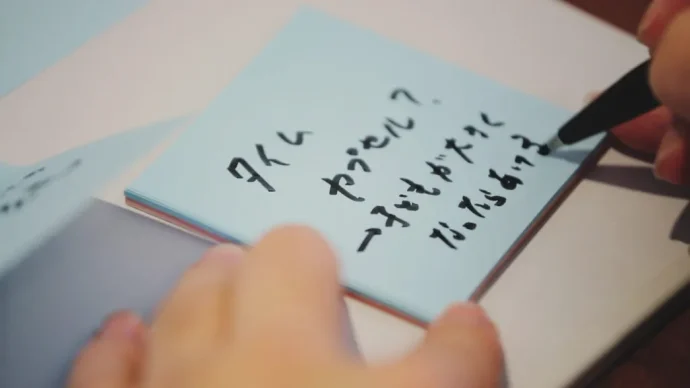 タイム
カプセル？
→子どもが大きく
なったらあける